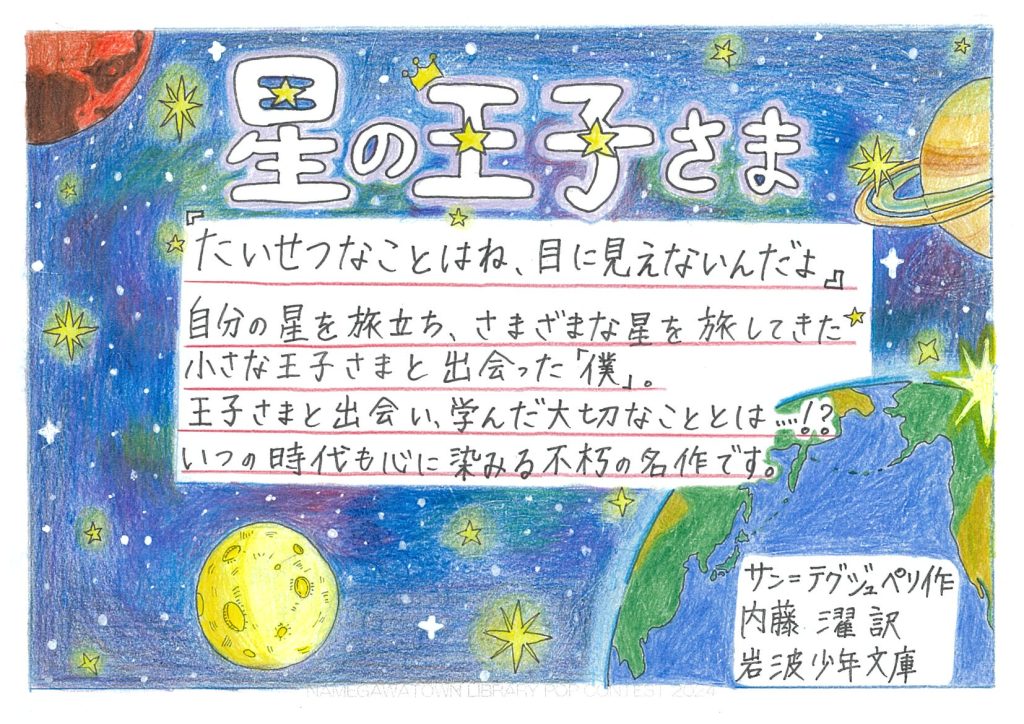 星の王子さま
『たいせつなことはね、目に見えないんだよ』
自分の星を旅立ち、さまざまな星を旅してきた
小さな王子さまと出会った「僕」。
王子さまと出会い、学んだ大切なこととは……!?
いつの時代も心に染みる不朽の名作です。
サン=テグジュペリ作
内藤 濯 訳
岩波少年文庫
NAMEGAWATOWN LIBRARY POP CONTEST 2024